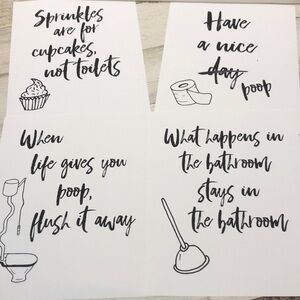 Sprinkles
are for
cupcakes,
not toilets
Have
a nice
day
poop
When
life gives you
poop,
flush it away
What happens in
the bathroom
stays in
the bathroom